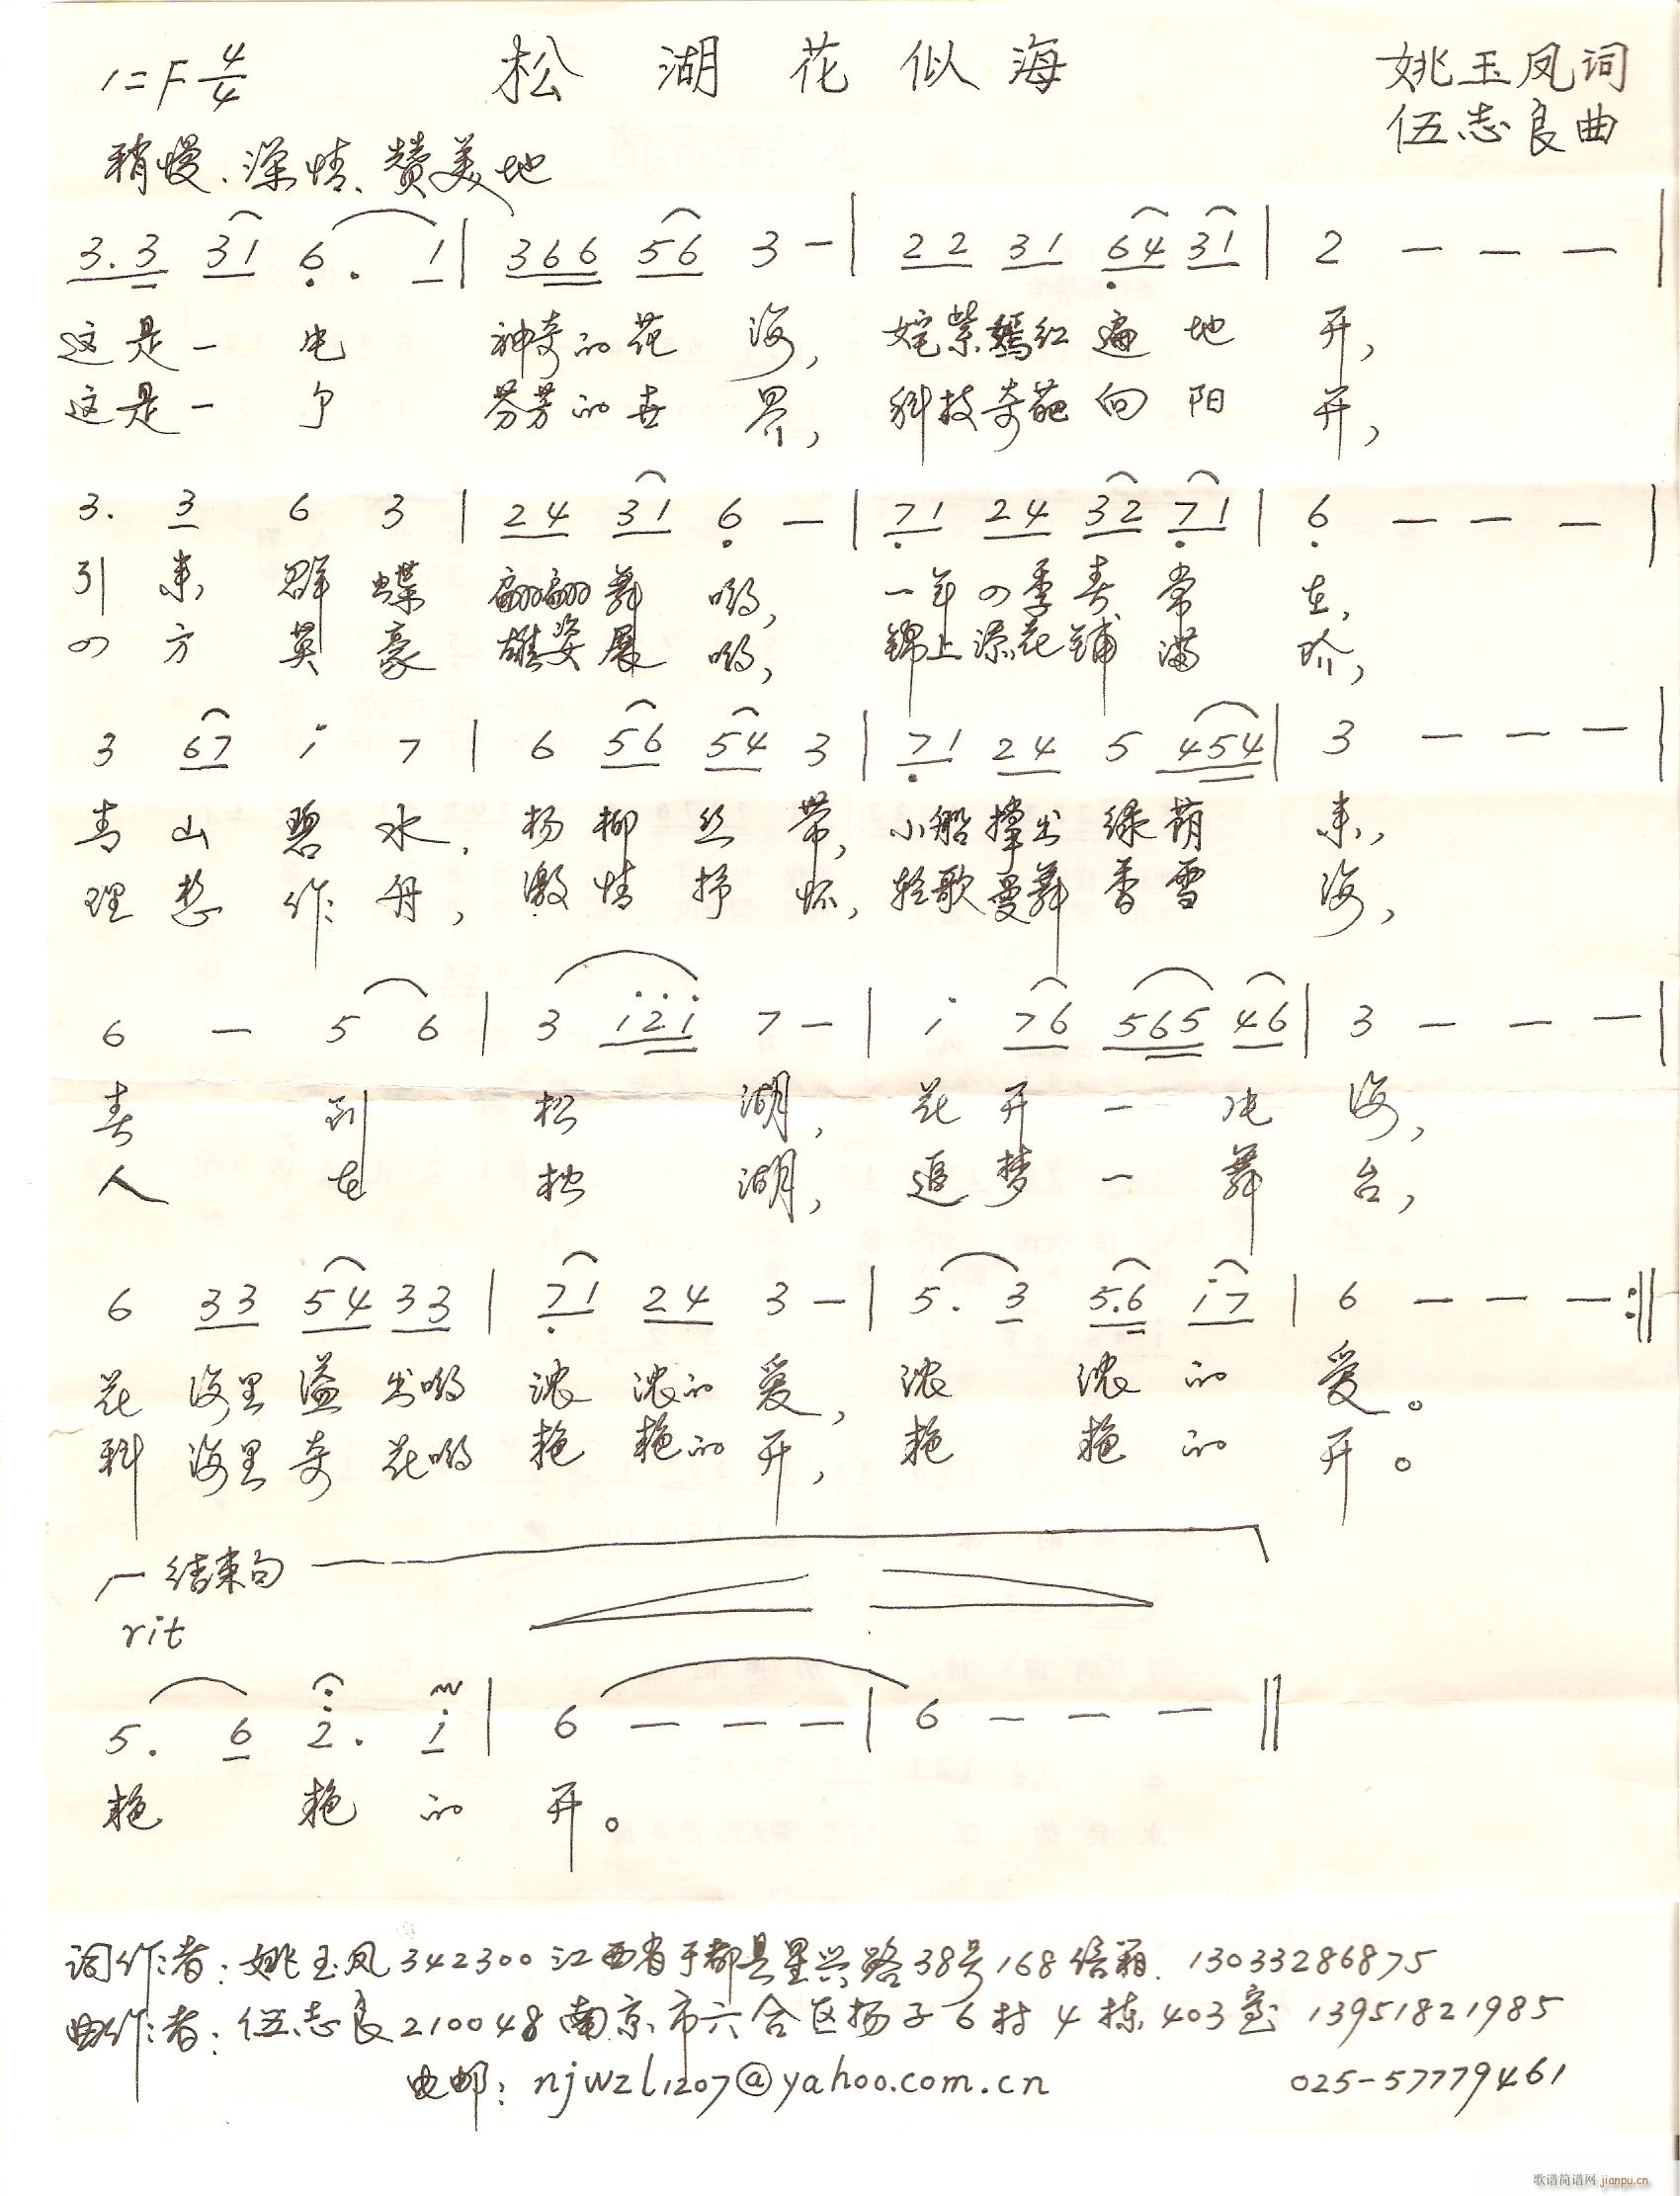 松湖花似海
1=F 4/4
姚玉凤词
伍志良曲
稍慢、深情、赞美地
3. 3 31 6. 1 | 366 56 3 — | 22 31 64 31 | 2 — — — |
这是一 神奇的花 海, 姹紫嫣红遍 地 开,
这是一 个 芬芳的世 界, 科技奇葩向 阳 开,
3. 3 6 3 | 24 31 6 — | 71 24 32 71 | 6 — — — |
引 来 群 蝶 翩翩舞 哟, 一年四季春 常 在,
四 方 英 豪 雄姿展 哟, 锦上添花铺 满
3 67 i 7 | 6 56 54 3 | 71 24 5 454 | 3 — — — |
青 山 碧 水, 杨 柳 丝 带, 小船撑出 绿荫 来,
理 想 作 舟, 激 情 抒 怀, 轻歌曼舞 香雪 海,
6 — 5 6 | 3 i2i 7 — | i 76 565 46 | 3 — — — |
春 到 松 湖, 花 开 一 海,
人 在 松 湖, 追 梦 一 舞 台,
6 33 54 33 | 71 24 3 — | 5. 3 5.6 i7 | 6 — — — :‖
花 海里 溢 出哟 浓 浓的 爱, 浓 浓 的 爱。
科 海里 奇 花哟 艳 艳的 开, 艳 艳 的 开。
结束句
rit
5. 6 2. i | 6 — — — | 6 — — — ‖
艳 艳 的 开。
词作者: 姚玉凤 342300 江西省于都县 兴路38号168信箱. 13033286875
曲作者: 伍志良 210048 南京市六合区扬子6村 4栋 403室 13951821985
电邮: njwzl1207@yahoo.com.cn 025-57779461
歌谱简谱网 jianpu.cn